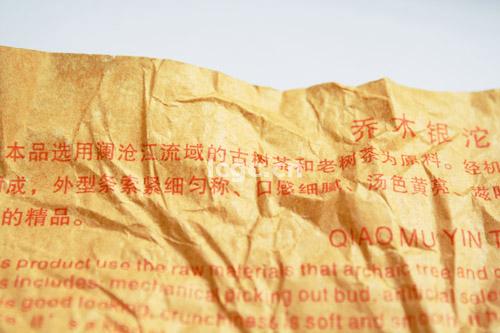 乔木银沱
本品选用澜沧江流域的古树茶和老树茶为原料。经机
制成，外型条索紧细匀称、口感细腻、汤色黄亮、滋
的精品。
QIAO MU YIN T
s product use the raw materials that archaic tree and
s includes: mechanical picking out bud, artificial sele
s good looking, crunchiness is soft and smooth, it